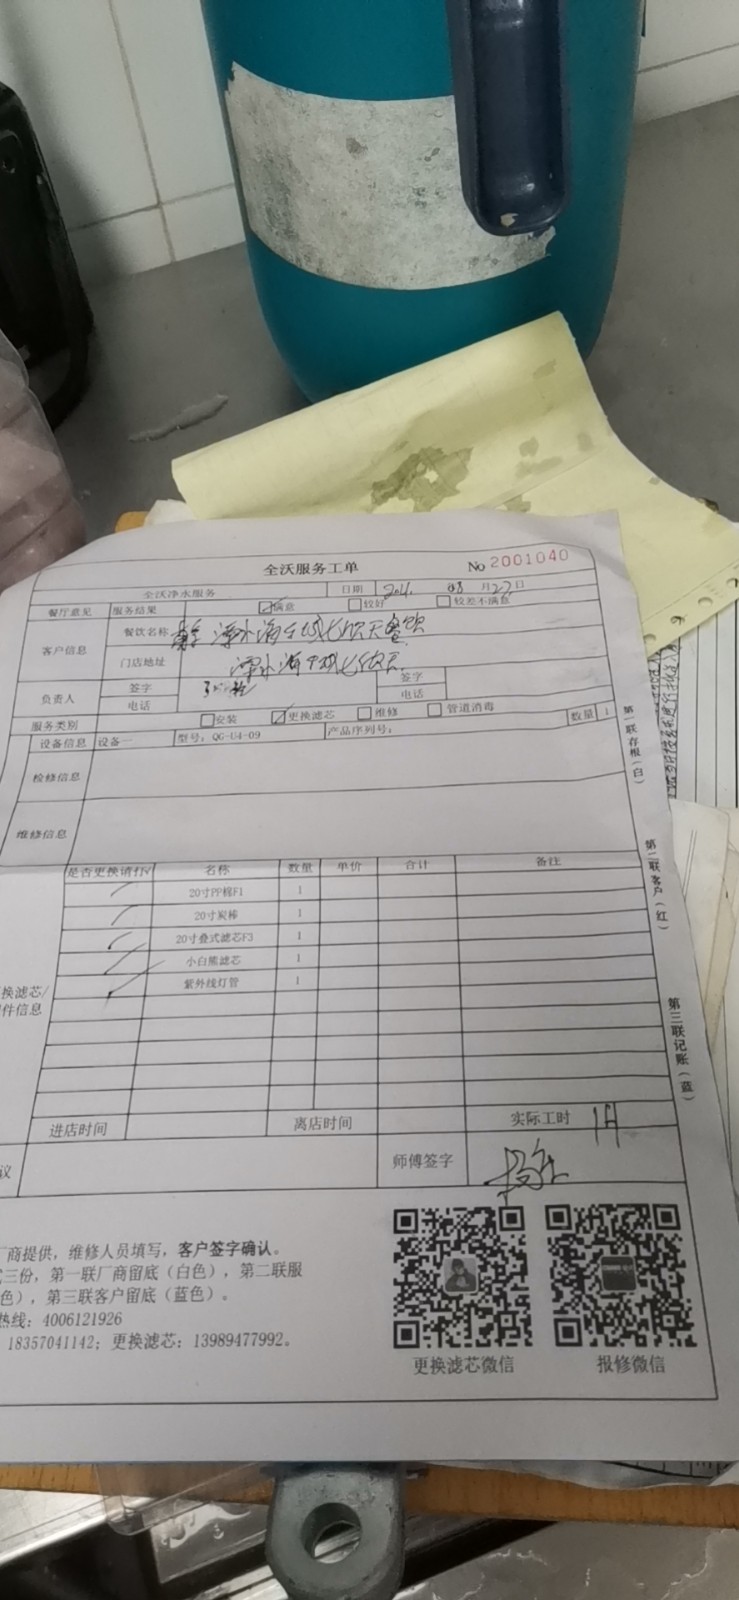 全沃服务工单
No 2001040
全沃净水服务 日期 08 月27日
餐厅意见 服务结果 满意 较好 较差不满意
客户信息 餐饮名称
门店地址
负责人 签字 签字
电话 电话
服务类别 安装 更换滤芯 维修 管道消毒 数量 1
设备信息 设备一 型号：QG-U4-09 产品序列号：
检修信息
维修信息
是否更换请打√ 名称 数量 单价 合计 备注
20寸PP棉F1 1
20寸炭棒 1
20寸叠式滤芯F3 1
小白熊滤芯 1
紫外线灯管 1
换滤芯/
件信息
进店时间 离店时间 实际工时 1H
议 师傅签字
厂商提供，维修人员填写，客户签字确认。
式三份，第一联厂商留底（白色），第二联服
色），第三联客户留底（蓝色）。
热线：4006121926
18357041142；更换滤芯：13989477992。
更换滤芯微信 报修微信
第一联存根（白）
第二联客户（红）
第三联记账（蓝）